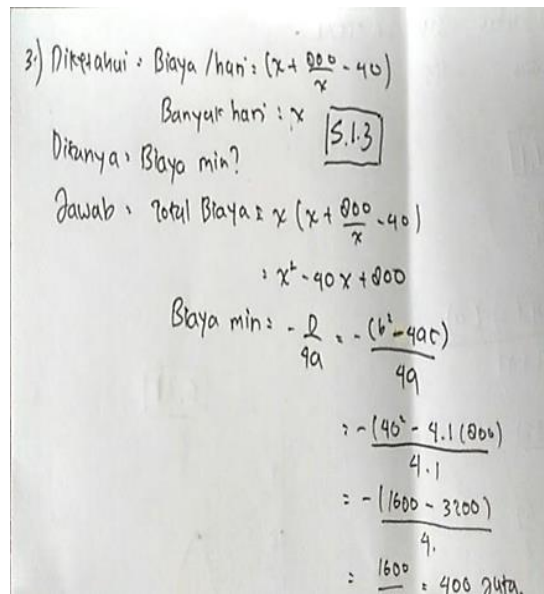 3.) Diketahui : Biaya /hari : (x + 800/x - 40)
Banyak hari : x
S.1.3
Ditanya : Biaya min?
Jawab : Total Biaya : x (x + 800/x - 40)
: x² - 40x + 800
Biaya min : - D/4a = -(b² - 4ac)/4a
: -(40² - 4.1(800)/4.1
= -(1600 - 3200)/4.
: 1600 = 400 Juta.